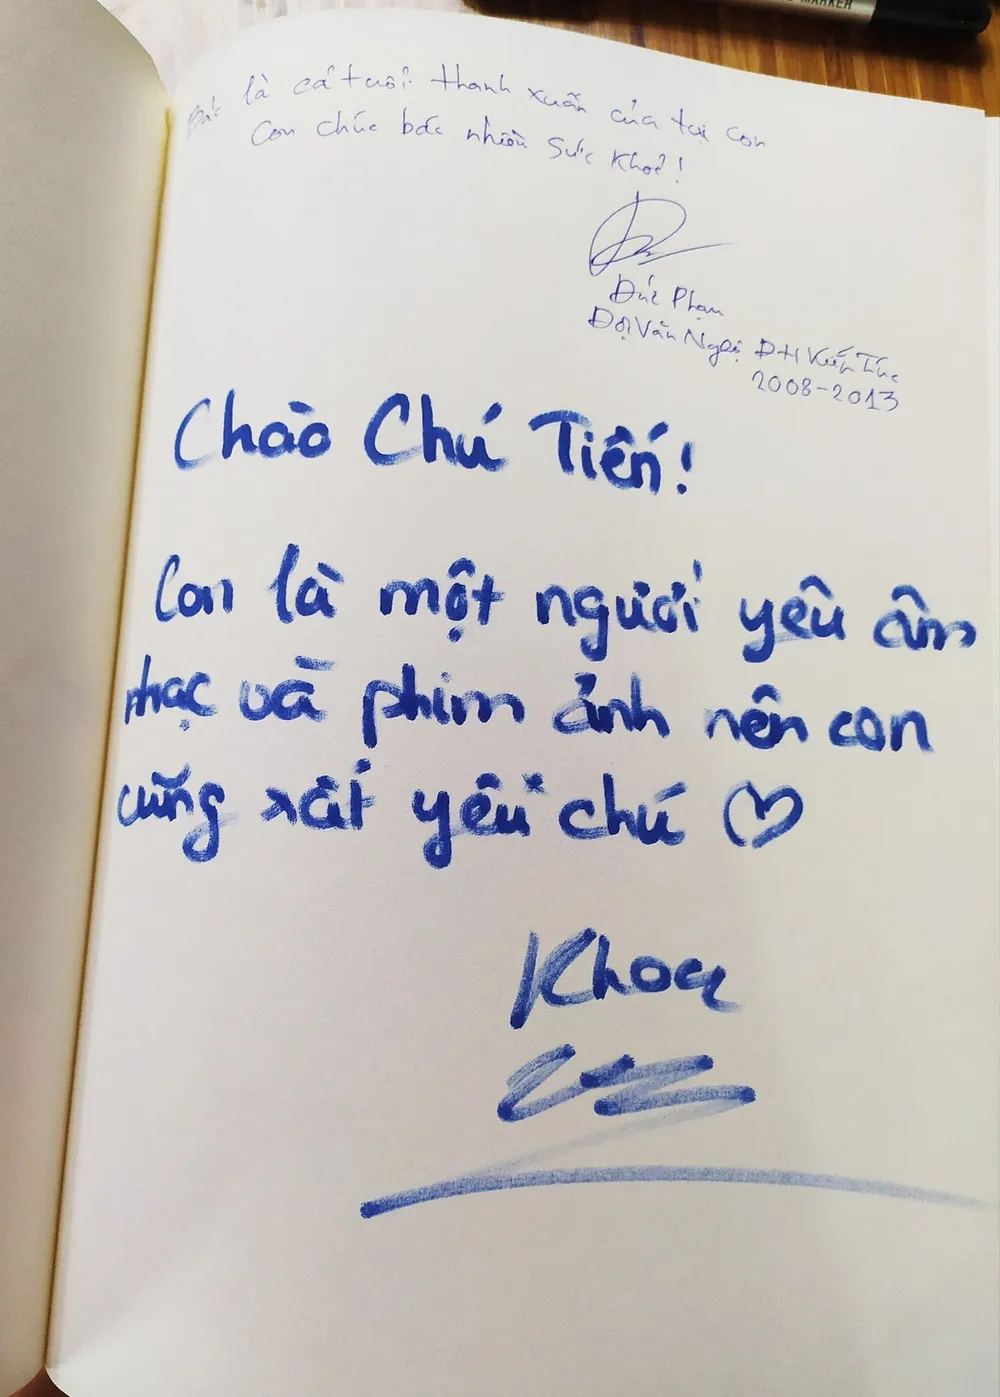 MARKER
Bác là cả tuổi thanh xuân của tụi con
Con chúc bác nhiều sức khoẻ!
Đức Phạm
Đội Văn Nghệ ĐH Kiến Trúc
2008-2013
Chào Chú Tiến!
Con là một người yêu âm
nhạc và phim ảnh nên con
cũng rất yêu chú
Khoa